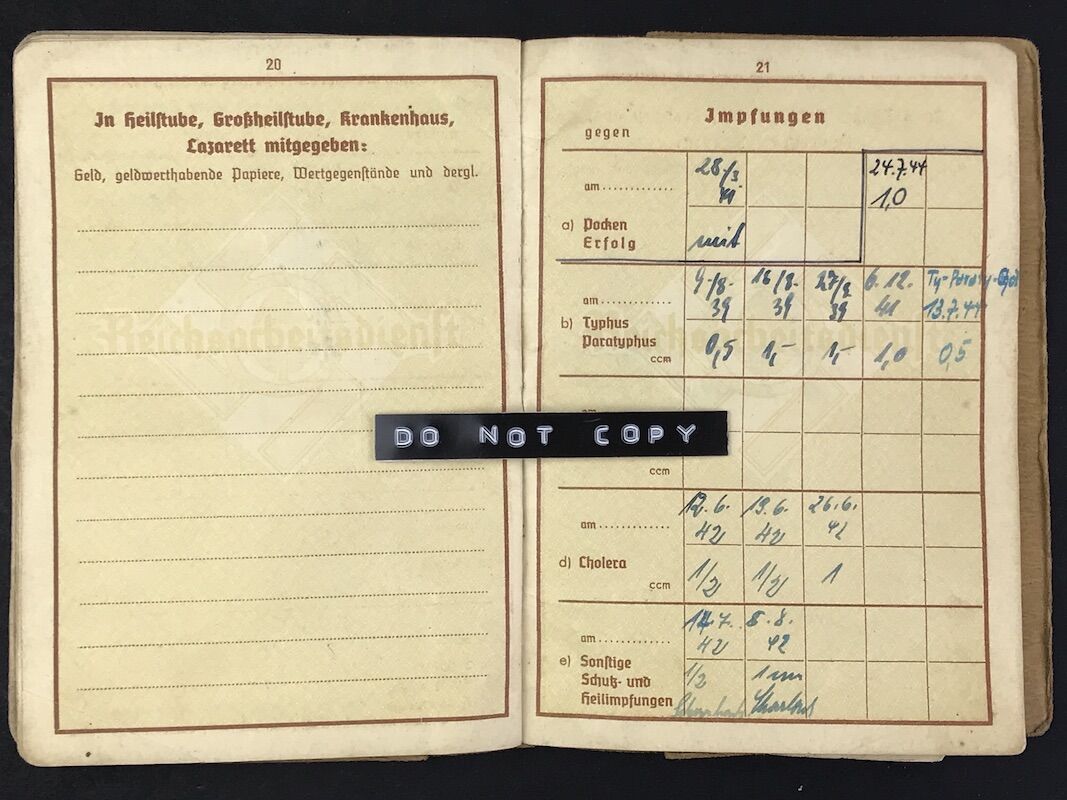 20
In Heilstube, Großheilstube, Krankenhaus,
Lazarett mitgegeben:
Geld, geldwerthabende Papiere, Wertgegenstände und dergl.
Reichsarbeitsdienst
21
Impfungen
gegen
am 28/3 24.7.44
41 1,0
a) Pocken
Erfolg mit
am 9/8. 16/8. 27/8 6.12.
39 39 39 41 13.7.44
b) Typhus
Paratyphus
ccm 0,5 1,- 1,- 1,0 0,5
am
DO NOT COPY
ccm
am 12.6. 19.6. 26.6.
42 42 42
d) Cholera
ccm 1/2 1/2 1
am 14.7. 8.8.
42 42
e) Sonstige
Schutz- und
Heilimpfungen
1/2
Scharlach